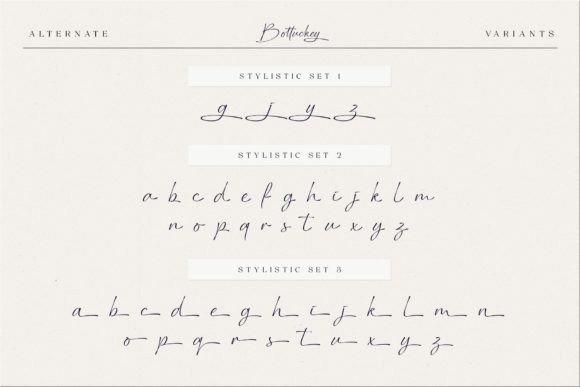 ALTERNATE Bottuckey VARIANTS
STYLISTIC SET 1
g j y z
STYLISTIC SET 2
a b c d e f g h i j k l m
n o p q r s t u x y z
STYLISTIC SET 3
a b c d e g h i j k l m n
o p q r s t u x y z